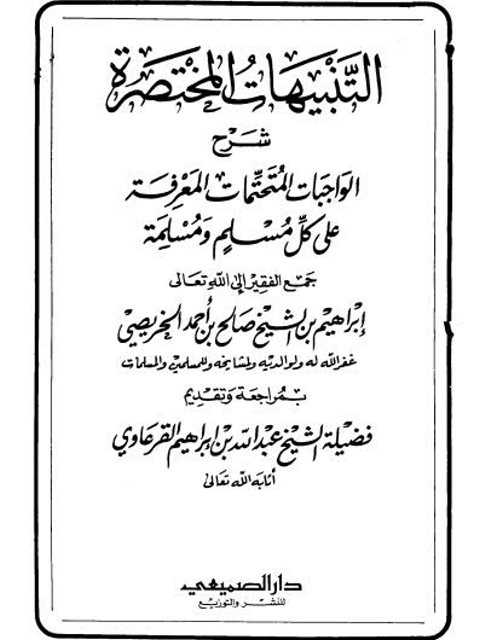 التَّنْبِيهَاتُ المُخْتَصَرَة
شَرْح
الوَاجِبَات المُتَحَتِّمَات المَعْرِفَة
عَلى كُلِّ مُسْلِمٍ وَمُسْلِمَة
جَمْع الفَقِيْر إِلى اللهِ تَعَالى
إِبْرَاهِيم بن الشَّيخ صَالح بن أَحْمَد الخُرَيصِيّ
غفر الله له ولوالديه ولمشايخه وللمسلمين والمسلمات
بمُرَاجعَة وَتَقْدِيم
فَضِيلَة الشَّيْخ عَبْدالله بن إِبْرَاهِيم القَرْعَاوي
أثابَهُ الله تعَالى
دار الصميعي
للنشر والتوزيع